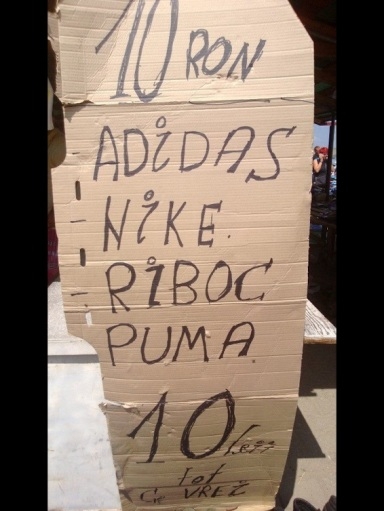 10 RON
ADiDAS
NiKE.
RiBOC
PUMA
10 Leii
Tot
Ce VREŽ